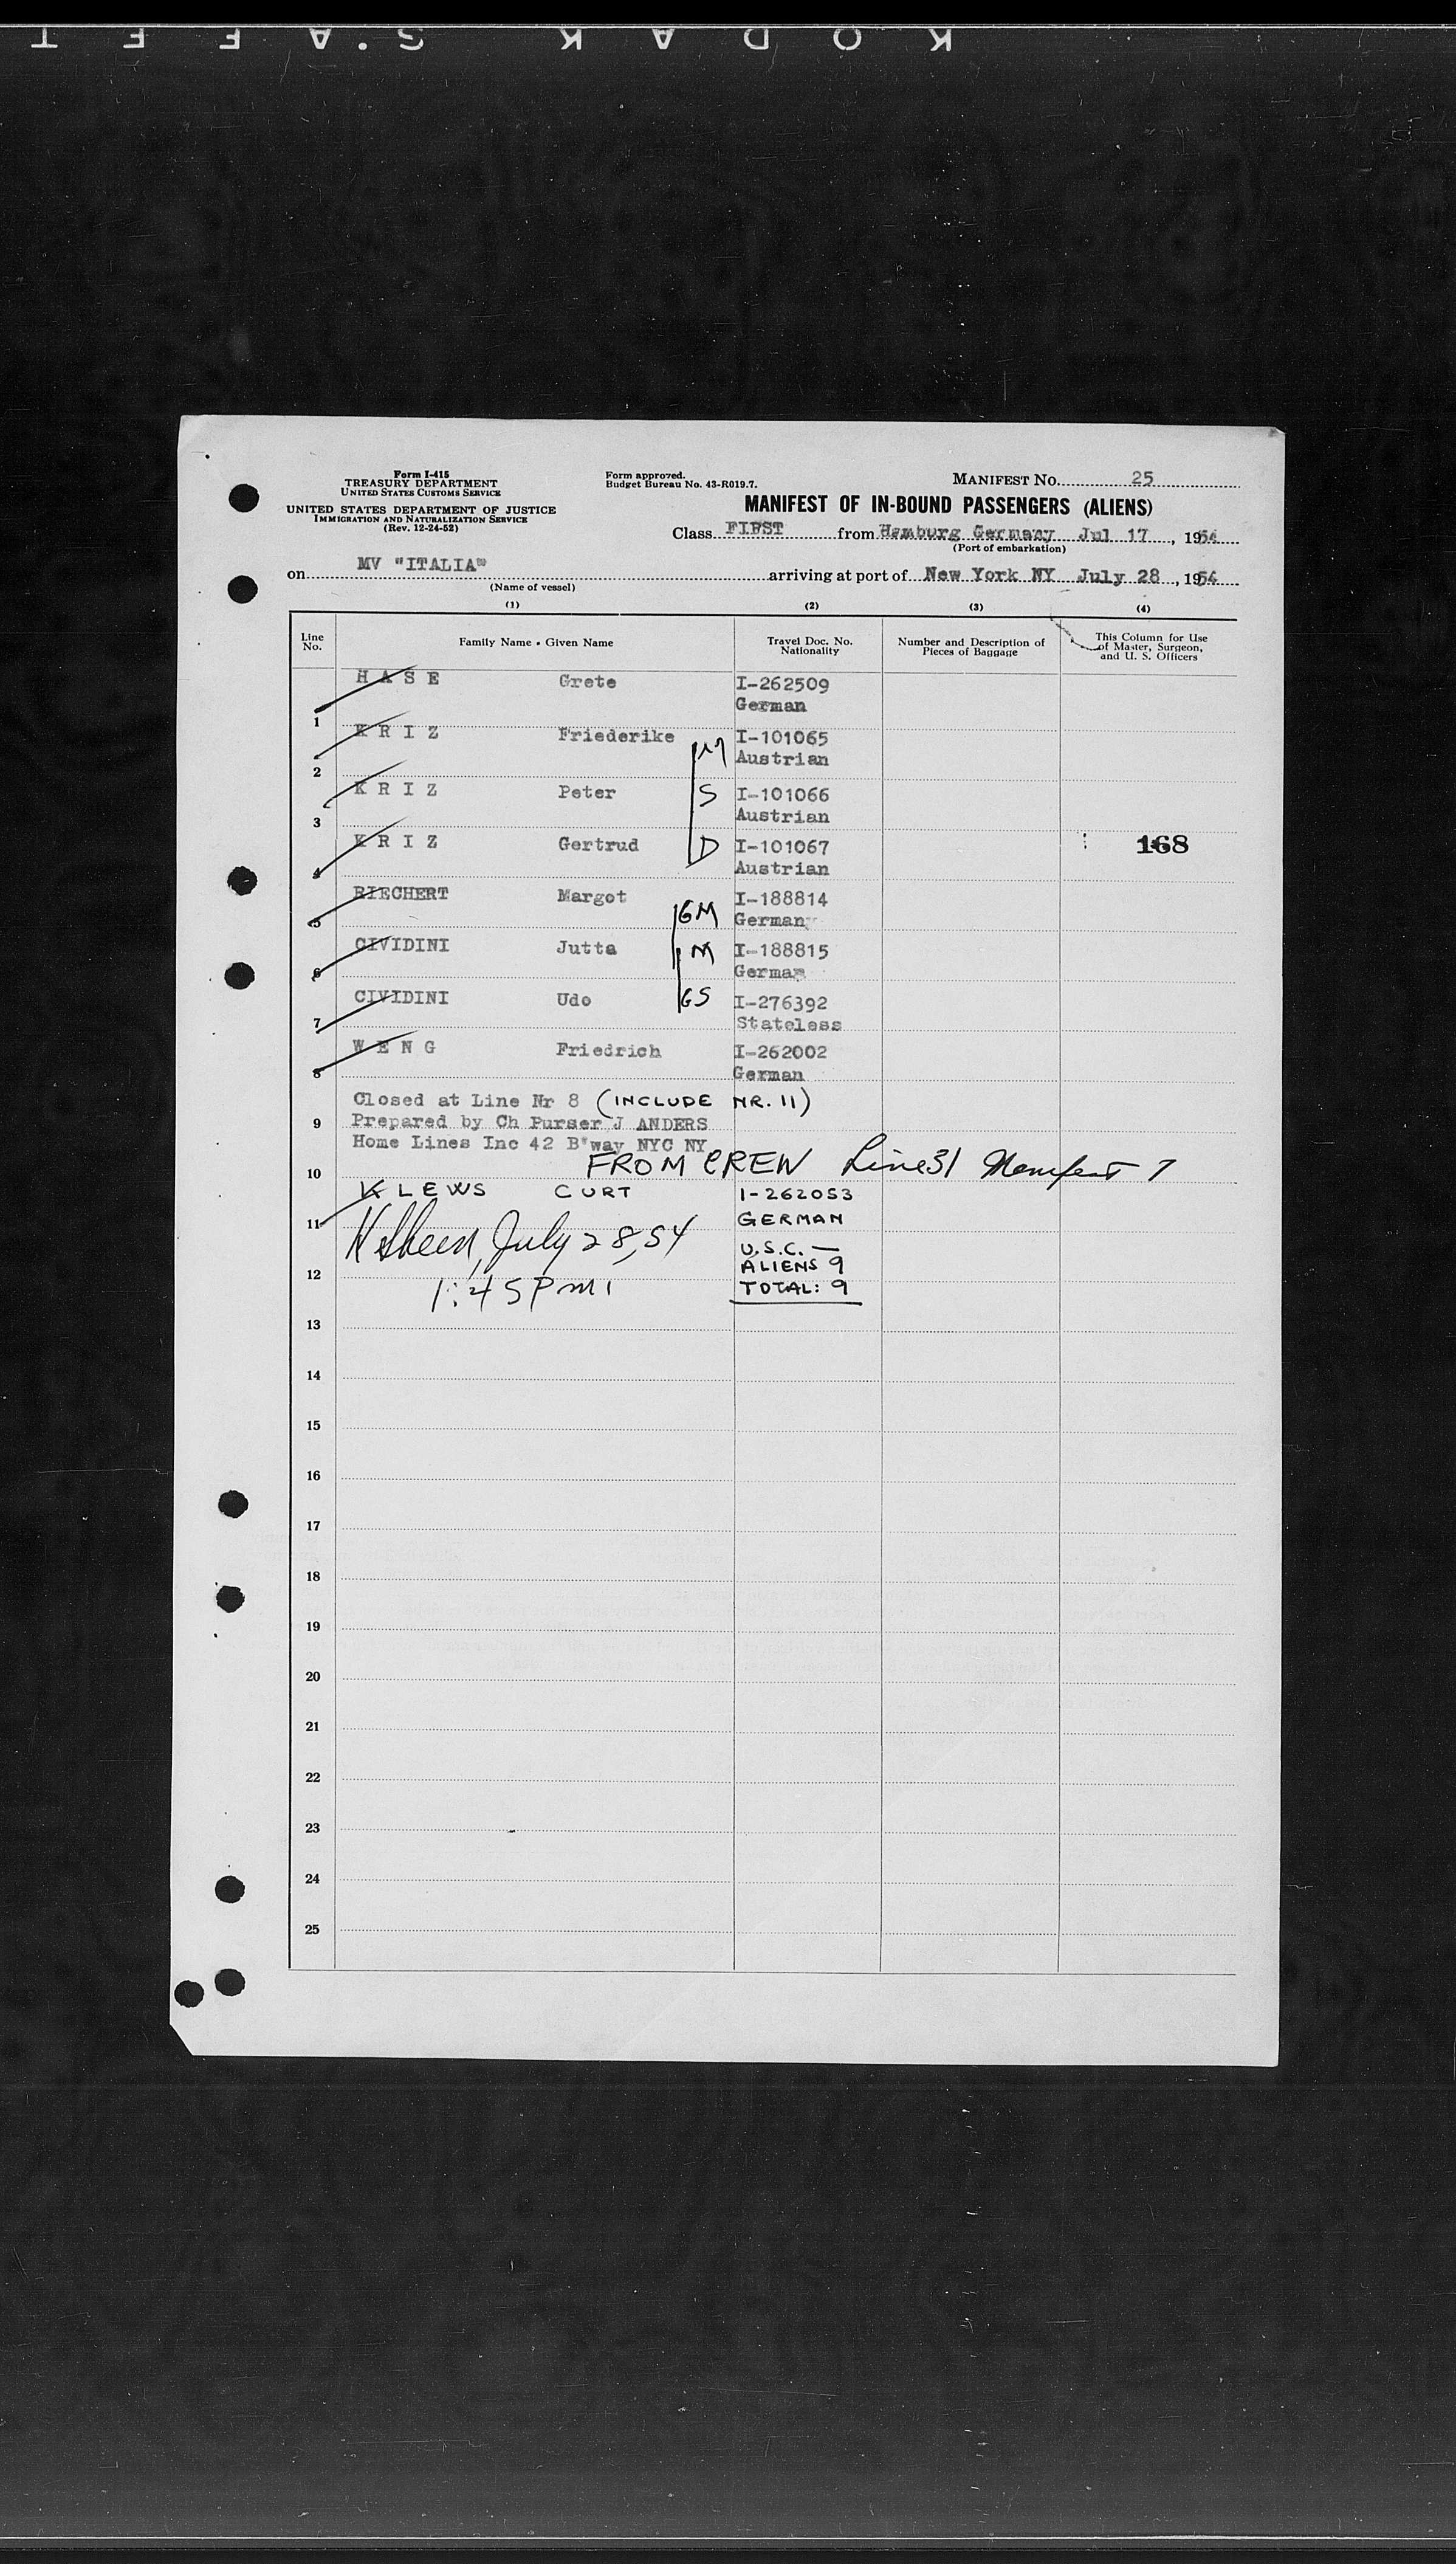 KODAK S.A F E T
Form I-415
TREASURY DEPARTMENT
UNITED STATES CUSTOMS SERVICE
UNITED STATES DEPARTMENT OF JUSTICE
IMMIGRATION AND NATURALIZATION SERVICE
(Rev. 12-24-52)
Form approved.
Budget Bureau No. 43-R019.7.
MANIFEST No. 25
MANIFEST OF IN-BOUND PASSENGERS (ALIENS)
Class FIRST from Hamburg Germany Jul 17, 1954
(Port of embarkation)
on MV "ITALIA" arriving at port of New York NY July 28, 1954
(Name of vessel)
(1) (2) (3) (4)
Line No. Family Name - Given Name Travel Doc. No. Nationality Number and Description of Pieces of Baggage This Column for Use of Master, Surgeon, and U. S. Officers
1 H A S E Grete I-262509
German
2 K R I Z Friederike M I-101065
Austrian
3 K R I Z Peter S I-101066
Austrian
4 K R I Z Gertrud D I-101067 168
Austrian
5 BIECHERT Margot GM I-188814
German
6 CIVIDINI Jutta M I-188815
German
7 CIVIDINI Udo GS I-276392
Stateless
8 W E N G Friedrich I-262002
German
Closed at Line Nr 8 (INCLUDE NR. 11)
9 Prepared by Ch Purser J ANDERS
Home Lines Inc 42 B'way NYC NY
10 FROM CREW Line 31 Manifest 7
11 KLEWS CURT I-262053
GERMAN
July 28, 54
U.S.C. —
ALIENS 9
12 1:45 Pm TOTAL: 9
13
14
15
16
17
18
19
20
21
22
23
24
25